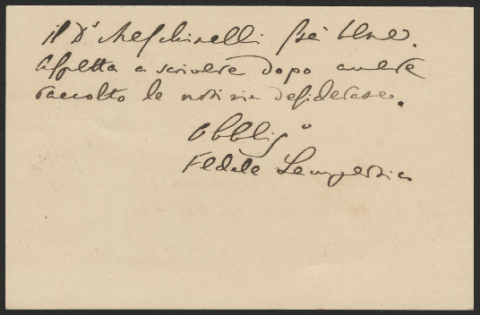 il Dr Meschinelli
aspetta a scrivere dopo avere
raccolto le notizie desiderate.
Obbligo
Fedele Lampertico